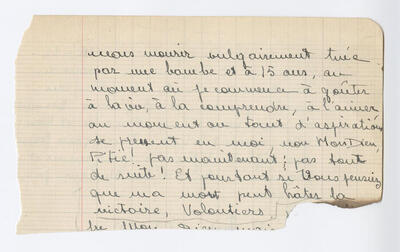 mais mourir vulgairement tuée
par une bombe et à 15 ans, au
moment où je commence à goûter
à la vie, à la comprendre, à l'aimer
au moment où tant d'aspirations
se pressent en moi, non Mon Dieu,
Pitié! pas maintenant; pas tout
de suite! Et pourtant si Vous pensiez
que ma mort peut hâter la
victoire, Volontiers
Mon Dieu mais